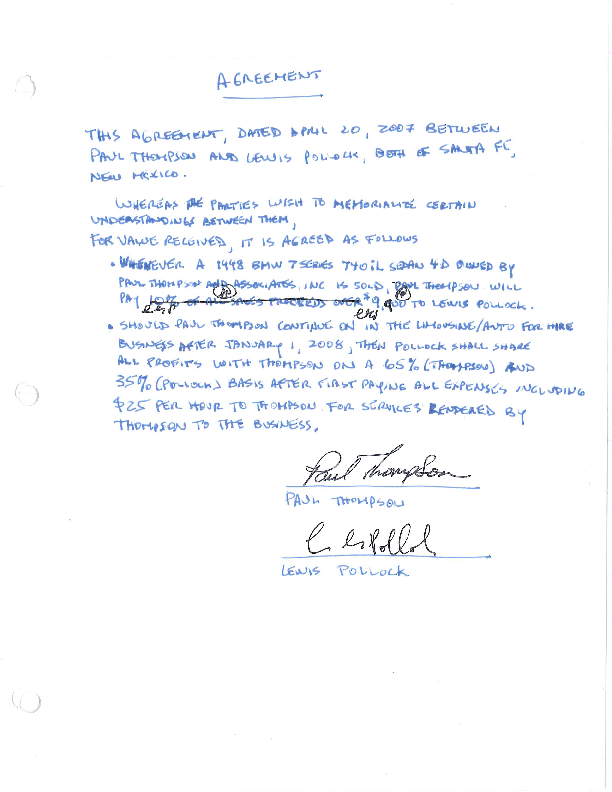 AGREEMENT
THIS AGREEMENT, DATED APRIL 20, 2007 BETWEEN
PAUL THOMPSON AND LEWIS POLLOCK, BOTH OF SANTA FE,
NEW MEXICO.
WHEREAS THE PARTIES WISH TO MEMORIALIZE CERTAIN
UNDERSTANDINGS BETWEEN THEM,
FOR VALUE RECEIVED, IT IS AGREED AS FOLLOWS
• WHENEVER A 1998 BMW 7 SERIES 740iL SEDAN 4D OWNED BY
PAUL THOMPSON AND ASSOCIATES, INC IS SOLD, PAUL THOMPSON WILL
PAY 10% OF ALL SALES PROCEEDS OVER $9,000 TO LEWIS POLLOCK.
• SHOULD PAUL THOMPSON CONTINUE ON IN THE LIMOUSINE/AUTO FOR HIRE
BUSINESS AFTER JANUARY 1, 2008, THEN POLLOCK SHALL SHARE
ALL PROFITS WITH THOMPSON ON A 65% (THOMPSON) AND
35% (POLLOCK) BASIS AFTER FIRST PAYING ALL EXPENSES INCLUDING
$25 PER HOUR TO THOMPSON FOR SERVICES RENDERED BY
THOMPSON TO THE BUSINESS.
Paul Thompson
PAUL THOMPSON
LEWIS POLLOCK